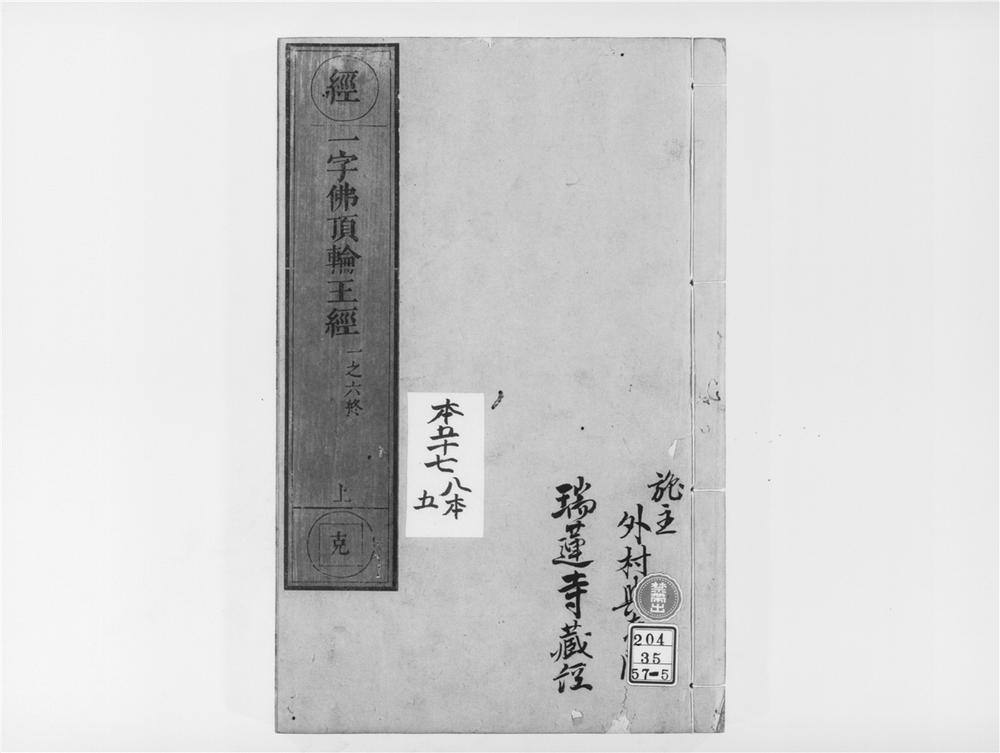 經
一字佛頂輪王經
一之六終
上
克
本五十七
八本
五
施主
外村
瑞蓮寺藏経
禁帶出
204
35
57-5